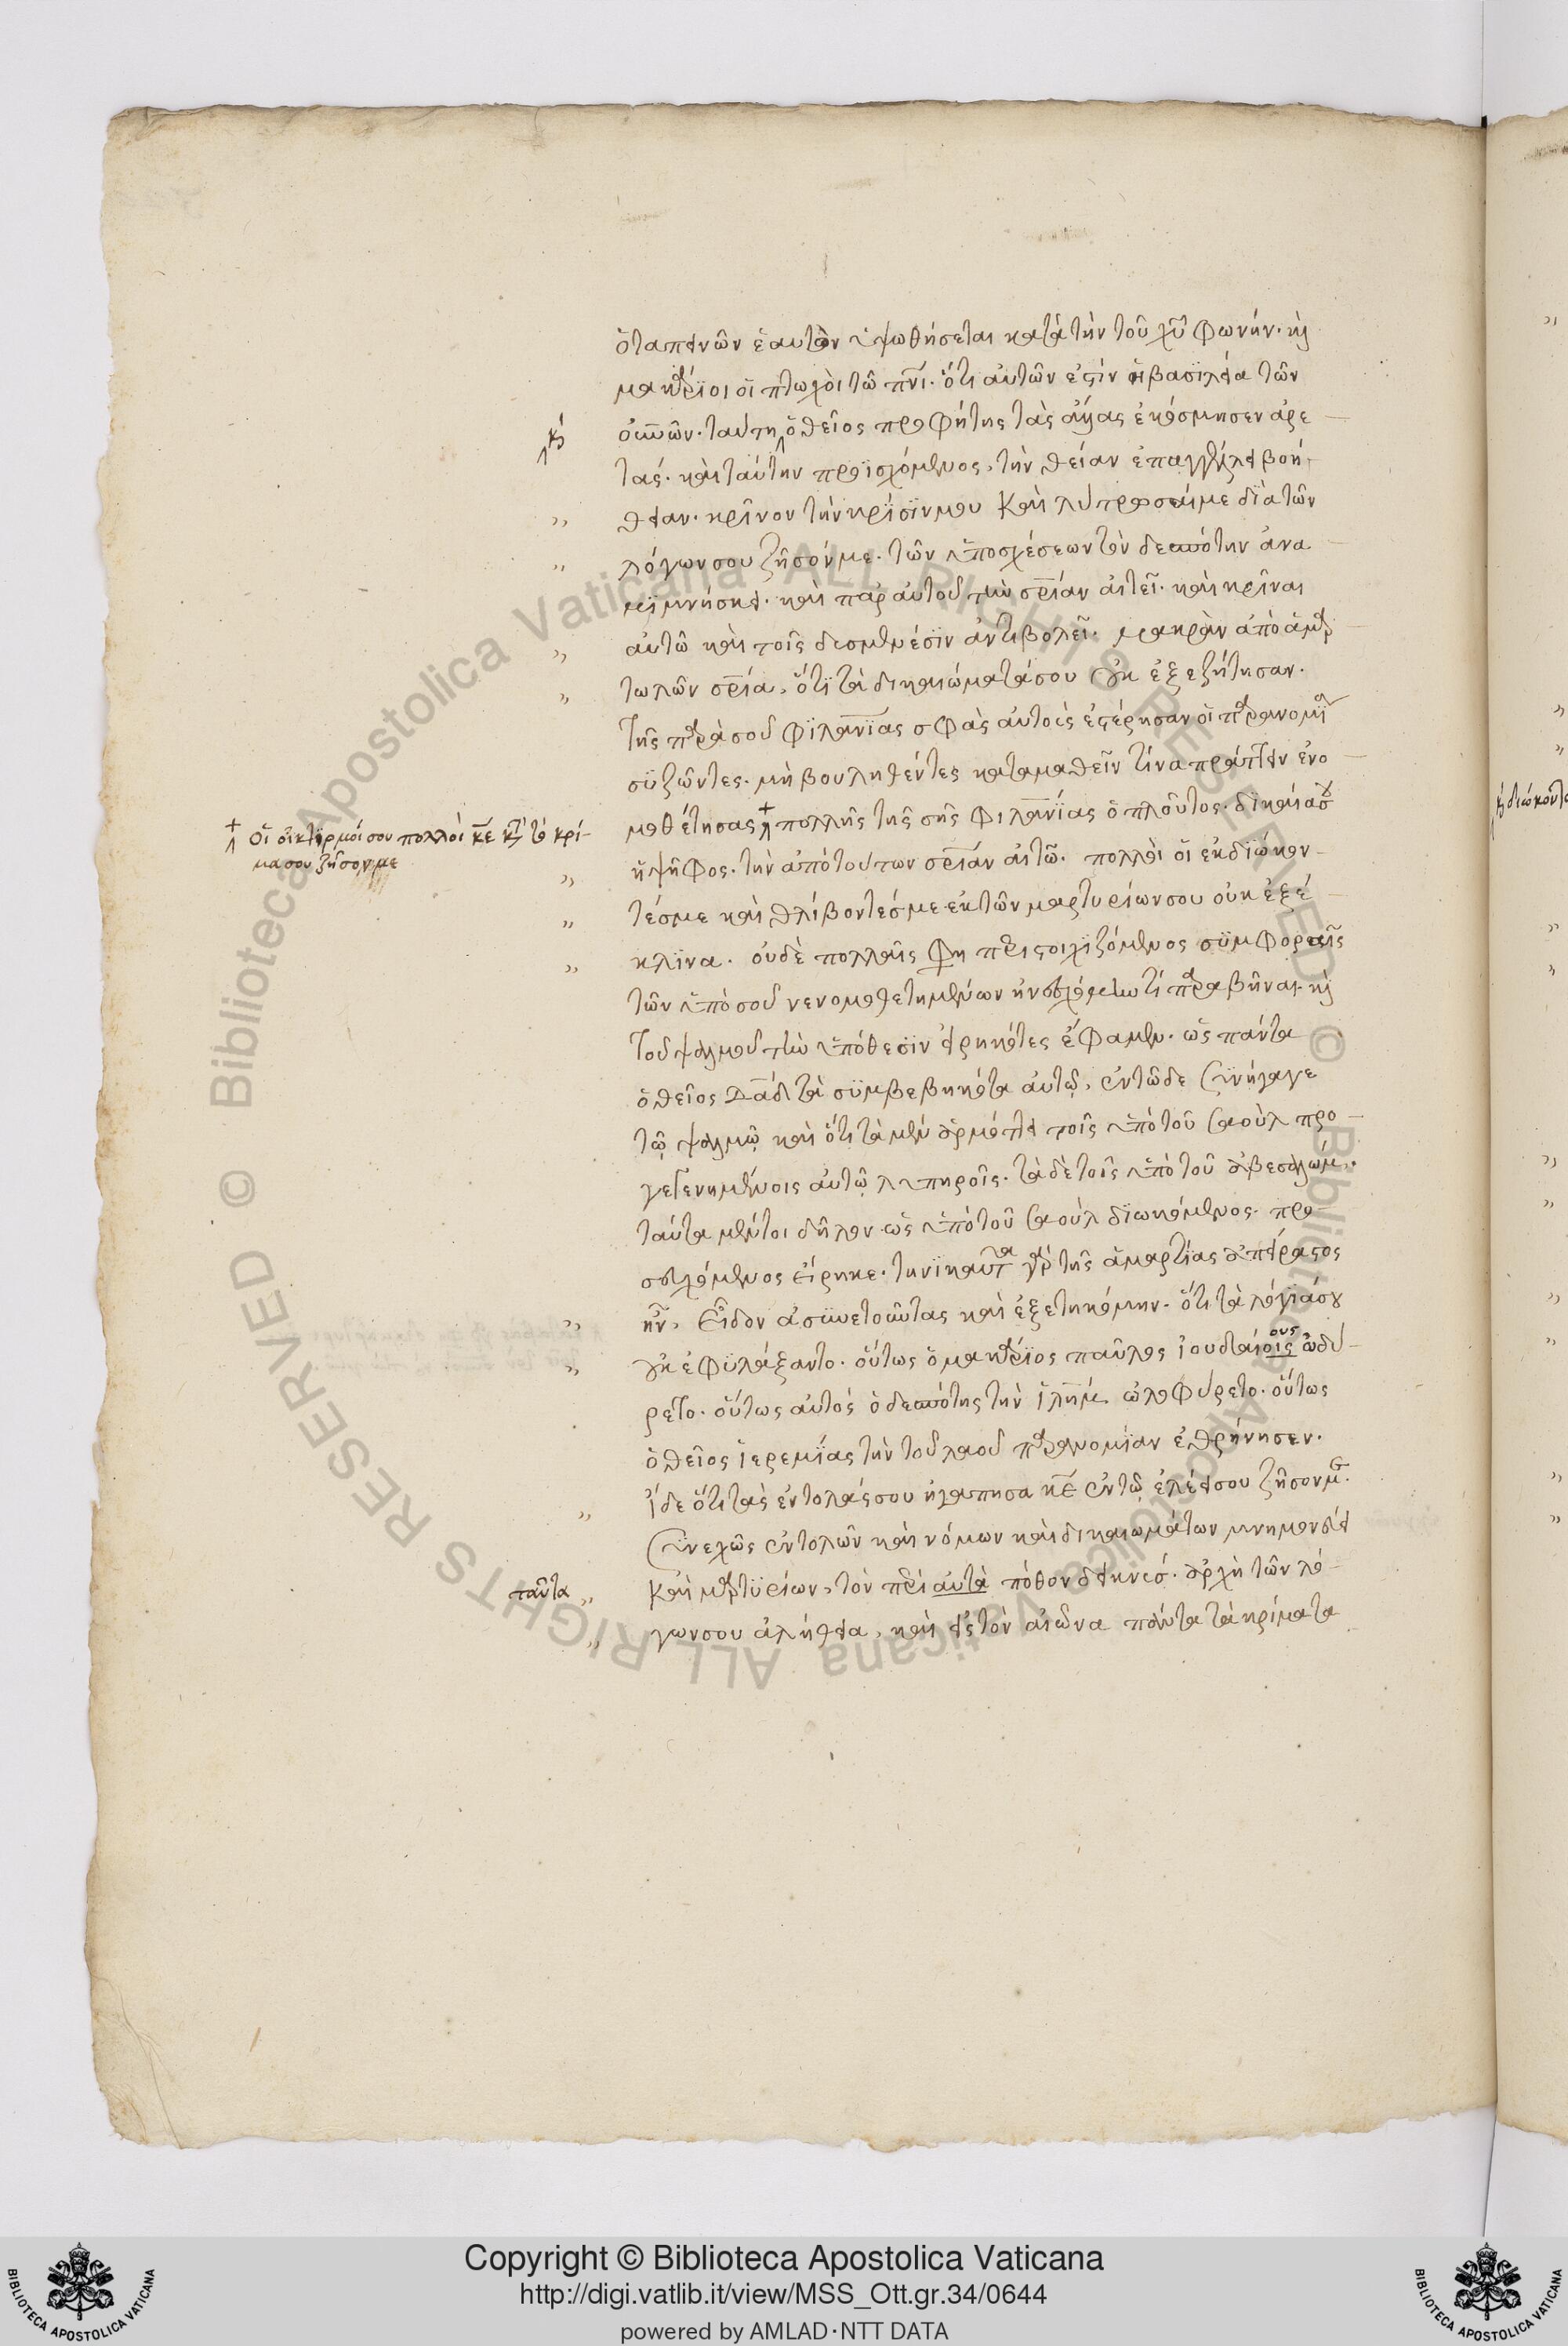 ὁ ταπεινῶν ἑαυτὸν ὑψωθήσεται κατὰ τὴν τοῦ χῦ φωνήν. καὶ
μακάριοι οἱ πτωχοὶ τῶ πνι. ὅτι αὐτῶν ἐστὶν ἡ βασιλεία τῶν
οὐνῶν. ταύτη ὁ θεῖος προφήτης τὰς ἄλλας ἐκόσμησεν ἀρε
καὶ
τάς. καὶ ταύτην προϊσχόμενος, τὴν θείαν ἐπαγγέλλει βοή
θειαν. κρῖνον τὴν κρίσιν μου καὶ λύτρωσαί με διὰ τῶν
λόγων σου ζῆσόν με. τῶν ὑποσχέσεων τὸν δεσπότην ἀνα
μιμνήσκει. καὶ παρ αὐτοῦ τὴν σρίαν αἰτεῖ. καὶ κρῖναι
αὐτῶ καὶ τοῖς δυσμενέσιν ἀντιβολεῖ. μακρὰν ἀπὸ ἁμαρ
τωλῶν σρία, ὅτι τὰ δικαιώματά σου οὐκ ἐξεζήτησαν.
τῆς παρὰ σοῦ φιλανίας σφᾶς αὐτοὺς ἐστέρησαν οἱ παρανομία
συζῶντες. μὴ βουληθέντες καταμαθεῖν τίνα πράττειν ἐνο
μοθέτησας + πολλῆς τῆς σῆς φιλανίας ὁ πλοῦτος. δικαία σου
+ Οἱ οἰκτιρμοί σου πολλοὶ κε κτ τὸ κρί-
μα σου ζῆσον με
ἡ ψῆφος. τὴν ἀπὸ τούτων σρίαν αἰτῶ. πολλοὶ οἱ ἐκδιώκον
τές με καὶ θλίβοντές με ἐκ τῶν μαρτυρίων σου οὐκ ἐξέ
κλινα. οὐδὲ πολλαῖς φη περιστοιχιζόμενος συμφοραῖς
τῶν ὑπὸ σοῦ νενομοθετημένων ἠνεσχόμην τί παραβῆναι. καὶ
τοῦ ψαλμοῦ τὴν ὑπόθεσιν εἰρηκότες ἔφαμεν. ὡς πάντα
ὁ θεῖος Δαδ τὰ συμβεβηκότα αὐτῷ, ἐν τῶδε συνήγαγε
τῷ ψαλμῷ καὶ ὅτι τὰ μὲν ἁρμόττει τοῖς ὑπὸ τοῦ σαοὺλ προ
γεγενημένοις αὐτῷ λυπηροῖς. τὰ δὲ τοῖς ὑπὸ τοῦ ἀβεσαλώμ.
ταῦτα μέντοι δῆλον ὡς ὑπὸ τοῦ σαοὺλ διωκόμενος. προ
σευχόμενος εἴρηκε. τηνικαῦτα γὰρ τῆς ἁμαρτίας ἀπείραστος
ἦν. Εἶδον ἀσυνετοῦντας καὶ ἐξετηκόμην. ὅτι τὰ λόγιά σου
οὐκ ἐφυλάξαντο. οὕτως ὁ μακάριος παῦλος ἰουδαίοις ὠδύ
ους
ρετο. οὕτως αὐτὸς ὁ δεσπότης τὴν ἱλημ ὠλοφύρετο. οὕτως
ὁ θεῖος ἱερεμίας τὴν τοῦ λαοῦ παρανομίαν ἐθρήνησεν.
ἴδε ὅτι τὰς ἐντολάς σου ἠγάπησα κε ἐν τῷ ἐλέει σου ζῆσον με.
συνεχῶς ἐντολῶν καὶ νόμων καὶ δικαιωμάτων μνημονεύει
καὶ μαρτυρίων, τὸν περὶ αὐτὰ πόθον δεικνύς. ἀρχὴ τῶν λό
ταῦτα
γων σου ἀλήθεια, καὶ εἰς τὸν αἰῶνα πάντα τὰ κρίματα
καὶ διώκοντε
© Biblioteca Apostolica Vaticana ALL RIGHTS RESERVED © Biblioteca Apostolica Vaticana ALL RIGHTS RESERVED
Copyright © Biblioteca Apostolica Vaticana
http://digi.vatlib.it/view/MSS_Ott.gr.34/0644
powered by AMLAD·NTT DATA
BIBLIOTECA APOSTOLICA VATICANA
BIBLIOTECA APOSTOLICA VATICANA